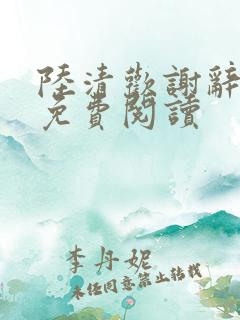 陸清歡謝辭
免費閱讀
李丹妮
未经同意禁止转载